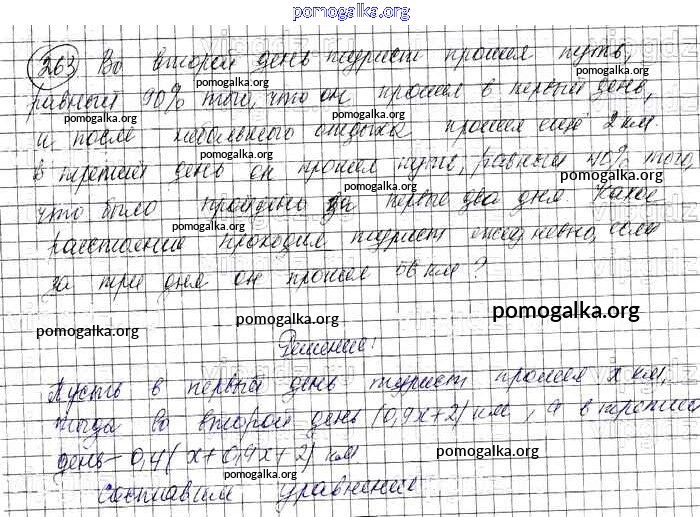 pomogalka.org
263 Во второй день турист прошел путь,
pomogalka.org pomogalka.org
равный 90% того, что он прошел в первый день,
pomogalka.org pomogalka.org
и после небольшого отдыха прошел еще 2 км.
pomogalka.org
В третий день он прошел путь, равный 40% того,
pomogalka.org pomogalka.org
что было пройдено за первые два дня. Какое
pomogalka.org pomogalka.org
расстояние проходил турист ежедневно, если
за три дня он прошел 56 км?
pomogalka.org pomogalka.org pomogalka.org
Решение:
Пусть в первый день турист прошел x км,
pomogalka.org pomogalka.org
тогда во второй день (0,9x+2) км, а в третий
день – 0,4(x+0,9x+2) км
pomogalka.org pomogalka.org
составим уравнение
pomogalka.org